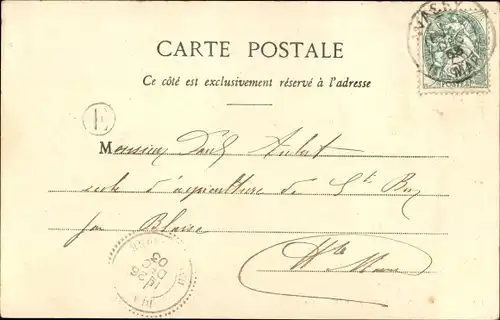 CARTE POSTALE
Ce côté est exclusivement réservé à l'adresse
E
Monsieur Paul Aubert
école d'agriculture de St Bon
par Blaise
Hte Marne
16
26
DEC
03